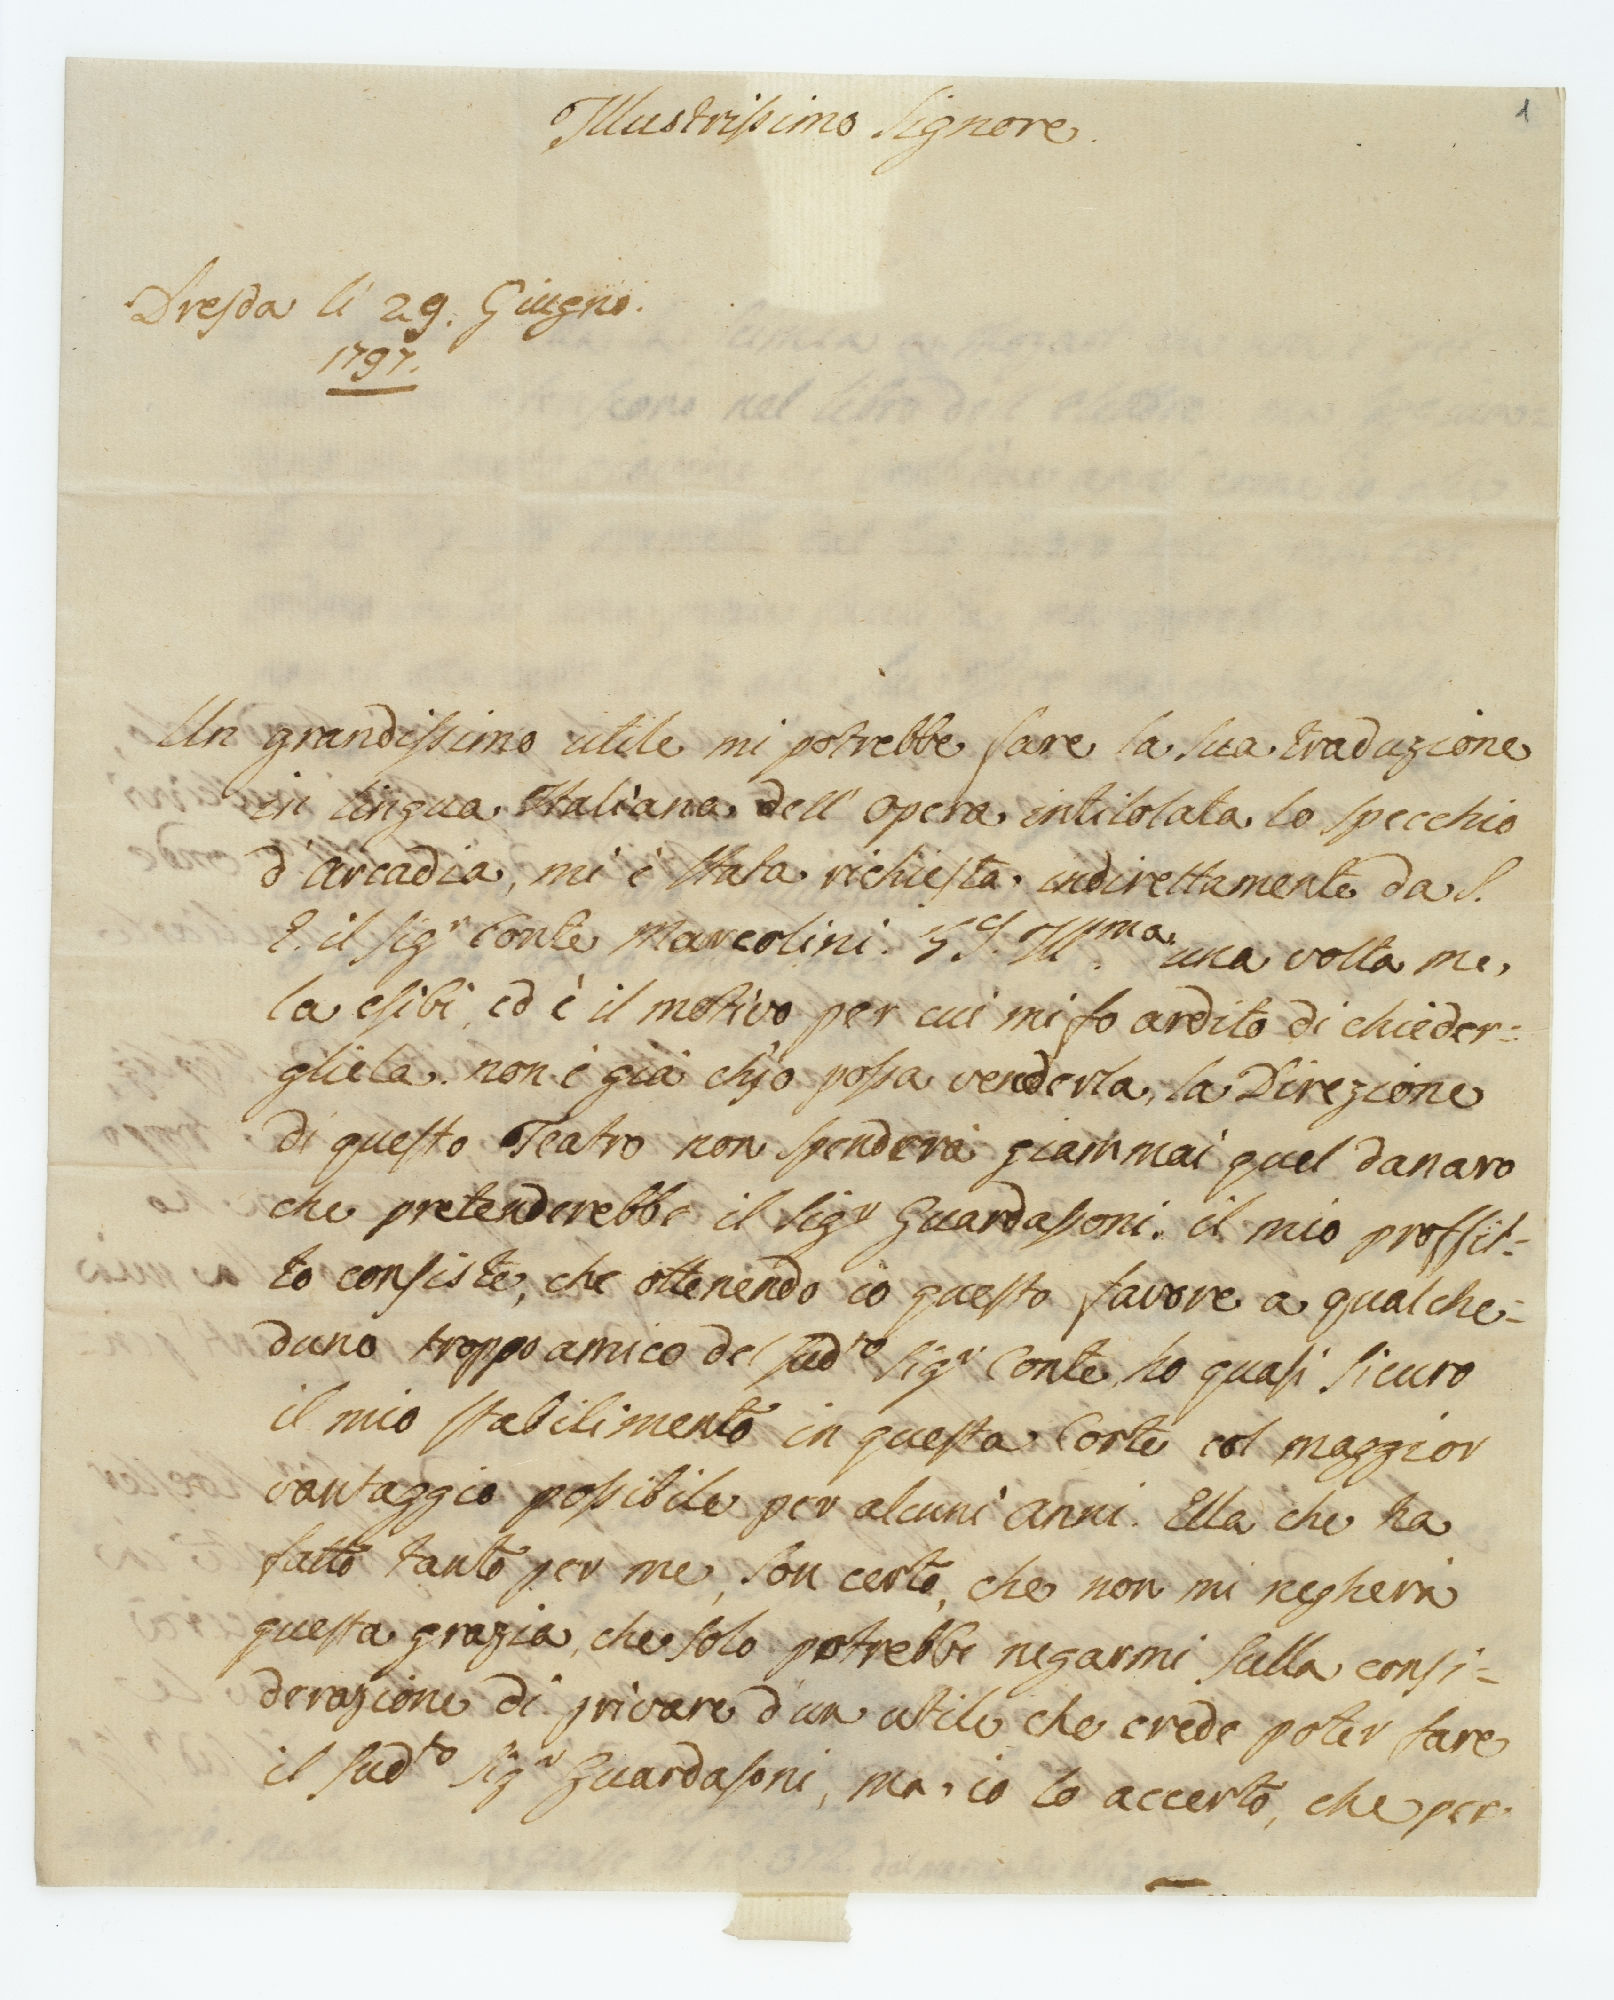 1
Illustrissimo Signore.
Dresda li 29. Giugno.
1797.
Un grandissimo utile mi potrebbe fare la sua traduzione
in lingua Italiana dell' opera intitolata lo specchio
d'arcadia, mi è stata richiesta indirettamente da S.
E. il Sigr Conte Marcolini. V. S. Illma. una volta me
la esibì, ed è il motivo per cui mi fo ardito di chieder=
gliela. non è già ch'io possa venderla, la Direzione
di questo Teatro non spenderà giammai quel danaro
che pretenderebbe il Sigr Guardassoni. il mio proffit=
to consiste, che ottenendo io questo favore a qualche=
duno troppo amico del sudto Sigr Conte, ho quasi sicuro
il mio stabilimento in questa Corte col maggior
vantaggio possibile per alcuni anni. Ella che ha
fatto tanto per me, son certo, che non mi negherà
questa grazia, che solo potrebbe negarmi sulla consi=
derazione di privare d'un utile che crede poter fare
il sudto Sigr Guardasoni, ma io lo accerto, che per